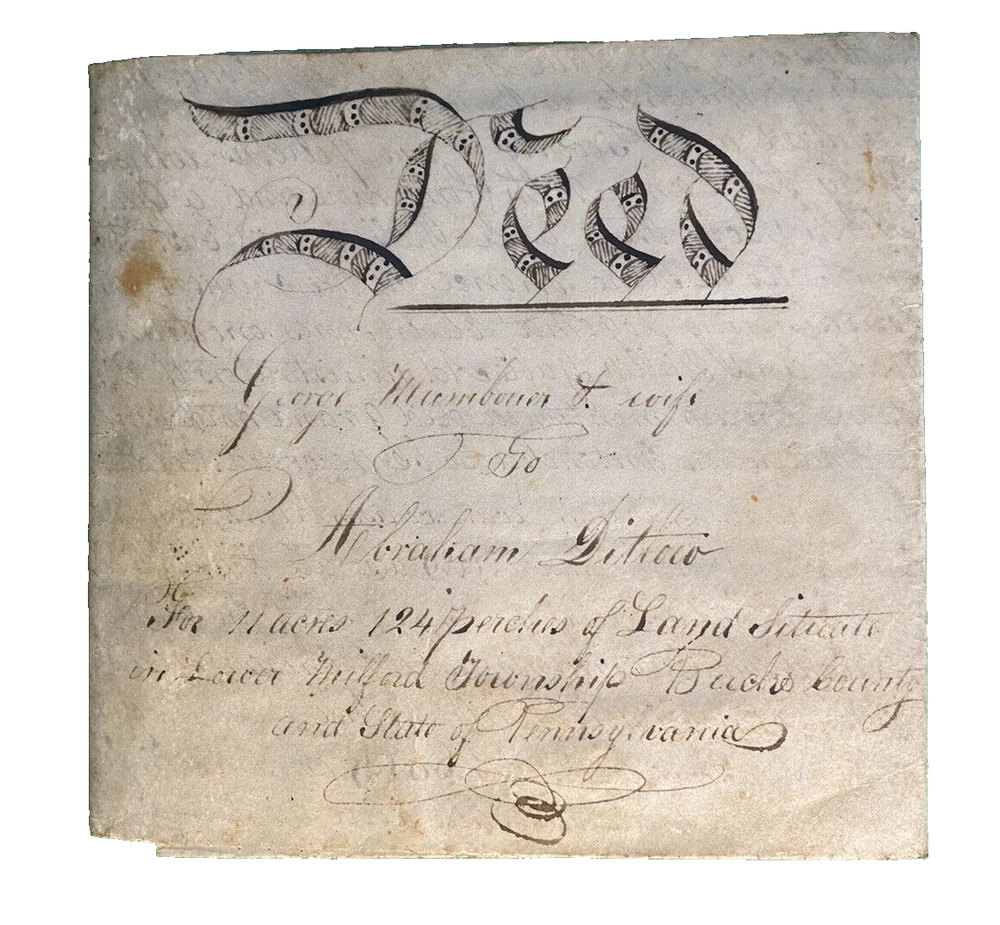 Deed
George Mumbower & wife
To
Abraham Dittow
For 11 acres 124 perches of Land Situate
in Lower Milford Township Bucks County
and State of Pennsylvania